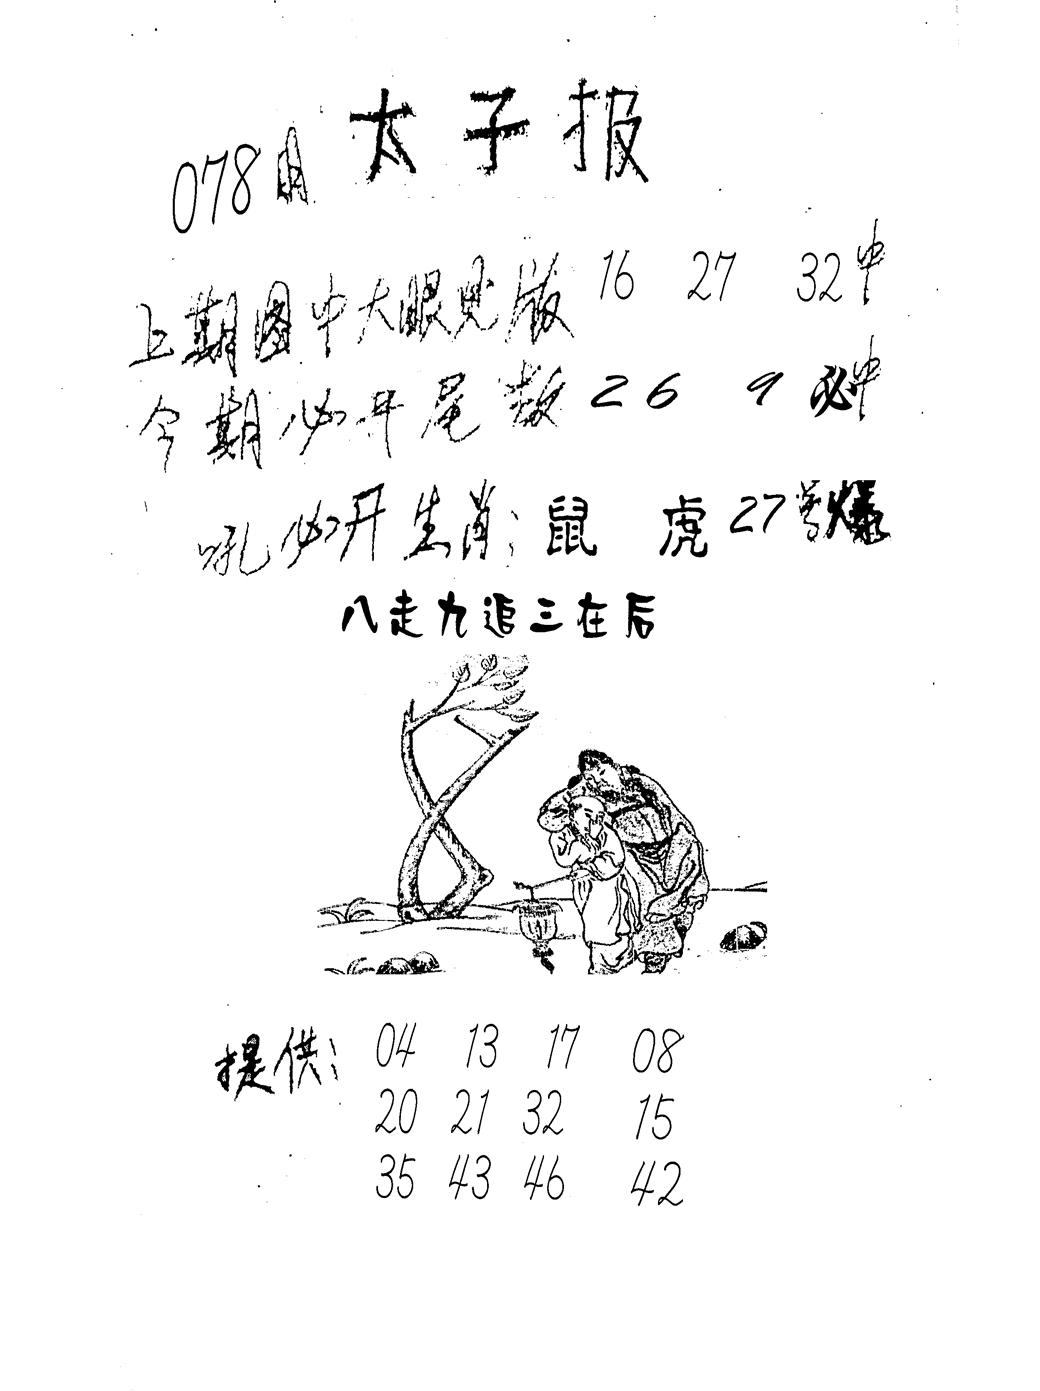 太子报
078期
上期图中大眼见版 16 27 32中
今期必开尾数 26 9 必中
吼必开生肖: 鼠 虎 27号爆
八走九追三在后
提供: 04 13 17 08
20 21 32 15
35 43 46 42